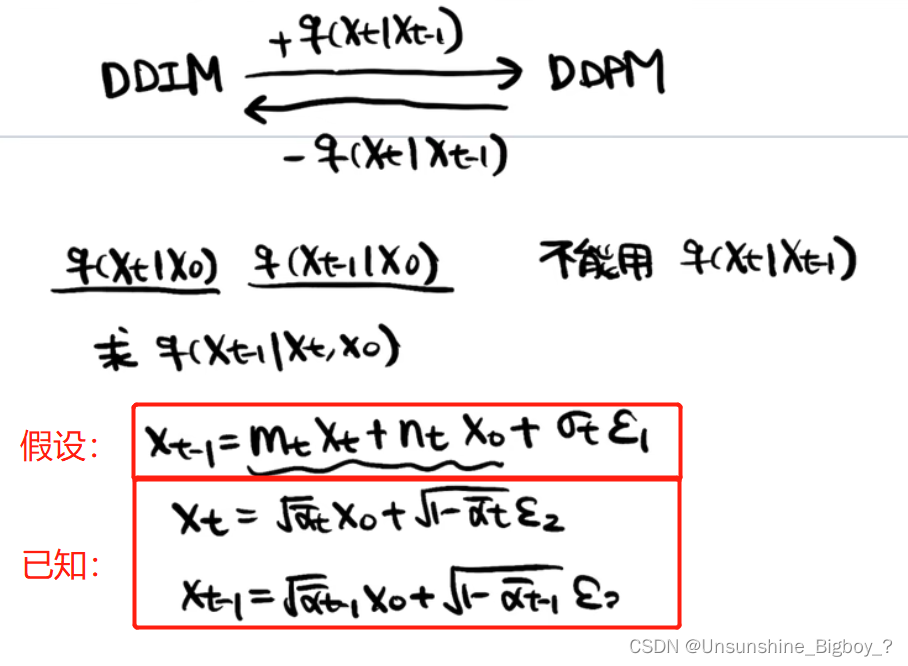 + q(xt|xt-1)
DDIM ⇄ DDPM
- q(xt|xt-1)
q(xt|x0) q(xt-1|x0) 不能用 q(xt|xt-1)
求 q(xt-1|xt, x0)
假设: xt-1 = mt xt + nt x0 + σt ε1
xt = √ᾱt x0 + √(1-ᾱt) ε2
已知:
xt-1 = √ᾱt-1 x0 + √(1-ᾱt-1) ε
CSDN @Unsunshine_Bigboy_?